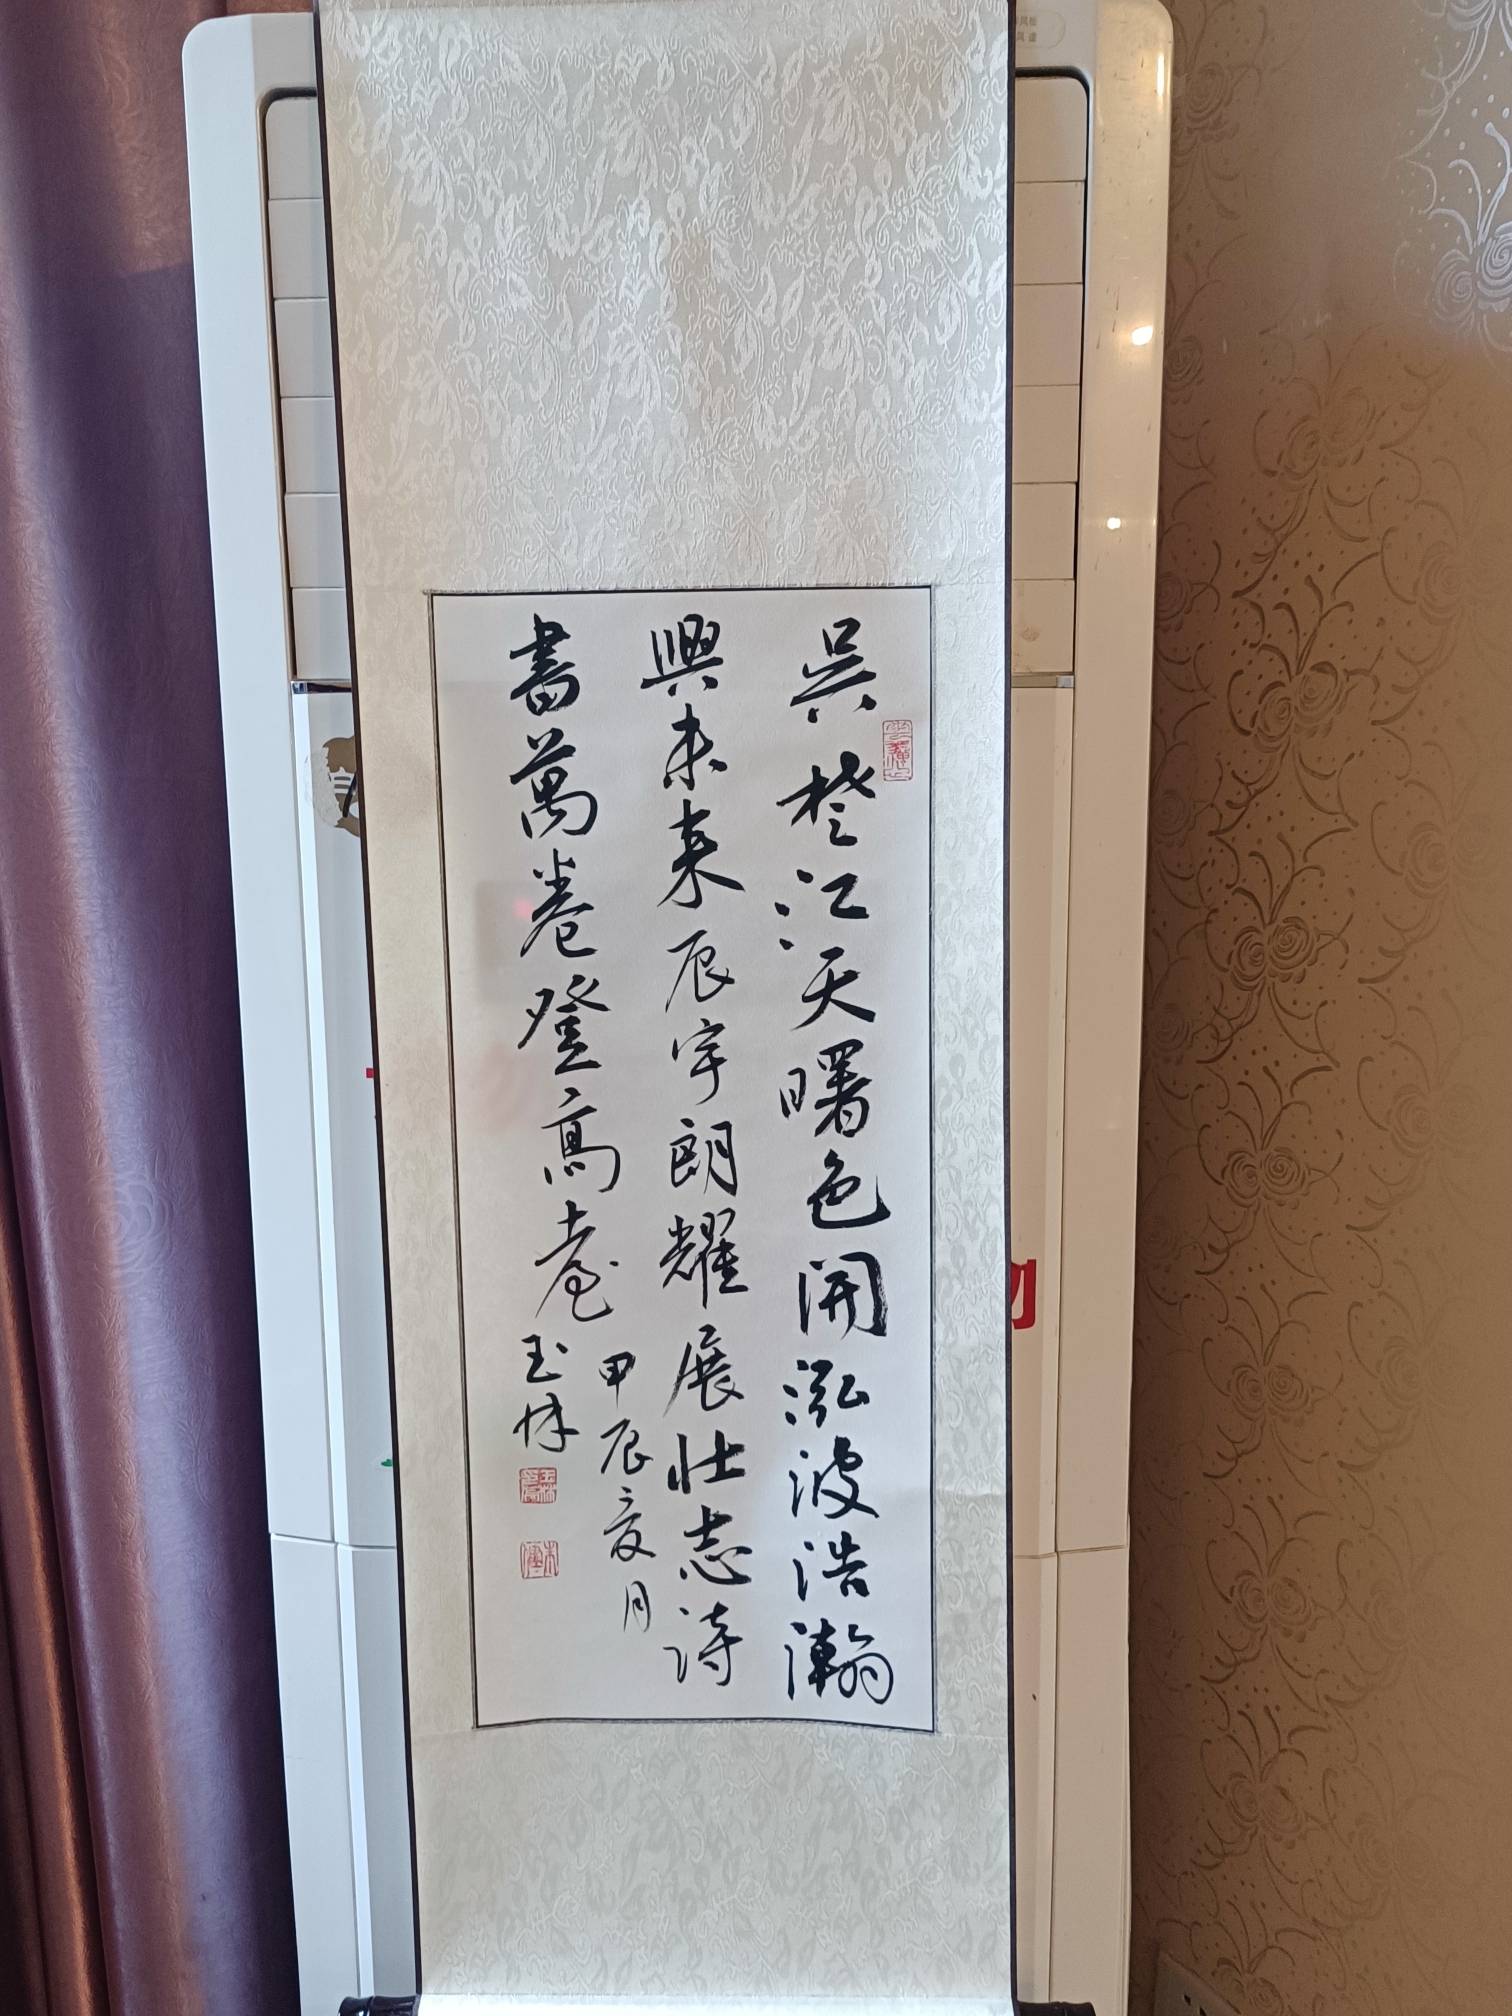 吴楚江天曙色開泓波浩瀚
興未来辰宇朗耀展壮志诗
書萬卷登高臺
甲辰夏月
玉林